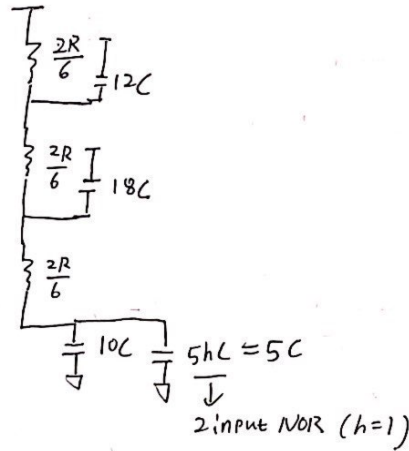 2R
6
12C
2R
6
18C
2R
6
10C
5hC = 5C
2 input NOR (h=1)